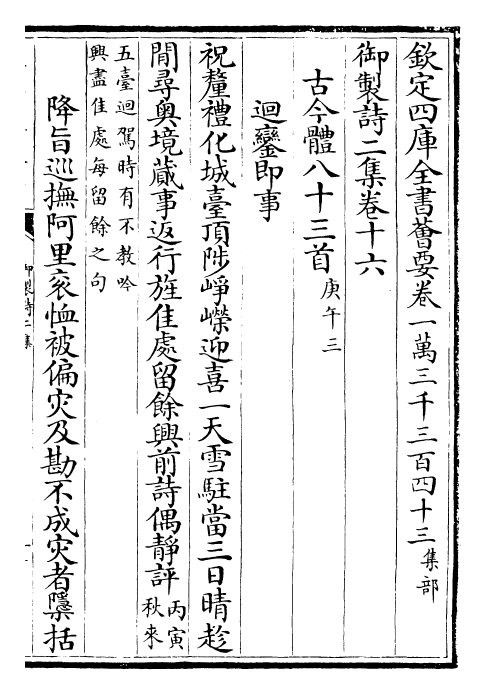 欽定四庫全書薈要卷一萬三千三百四十三集部
御製詩二集卷十六
古今體八十三首庚午三
迴鑾即事
祝釐禮化城臺頂陟崢嶸迎喜一天雪駐當三日晴趁
閒尋奧境蕆事返行旌佳處留餘興前詩偶靜評丙寅秋來
五臺迴駕時有不教吟
興盡佳處每留餘之句
降旨巡撫阿里衮恤被偏灾及勘不成灾者櫽括
御製詩二集